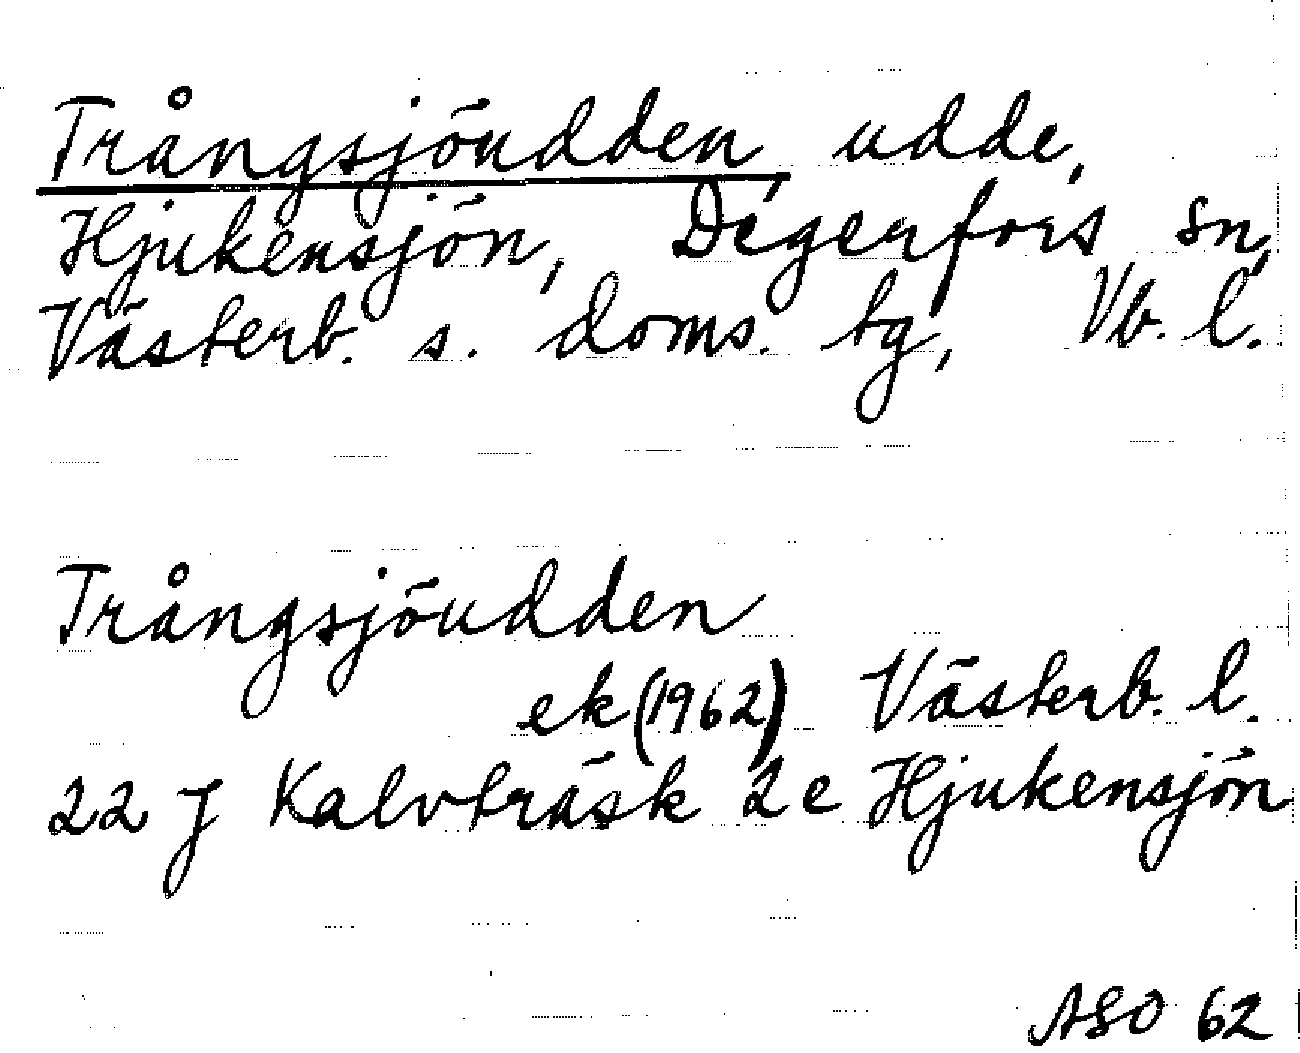 Trångsjöudden, udde,
Hjukensjön, Degerfors sn,
Västerb. s. doms. tg, Vb. l.
Trångsjöudden
ek (1962) Västerb. l.
22 J Kalvträsk 2 e Hjukensjön
ASO 62